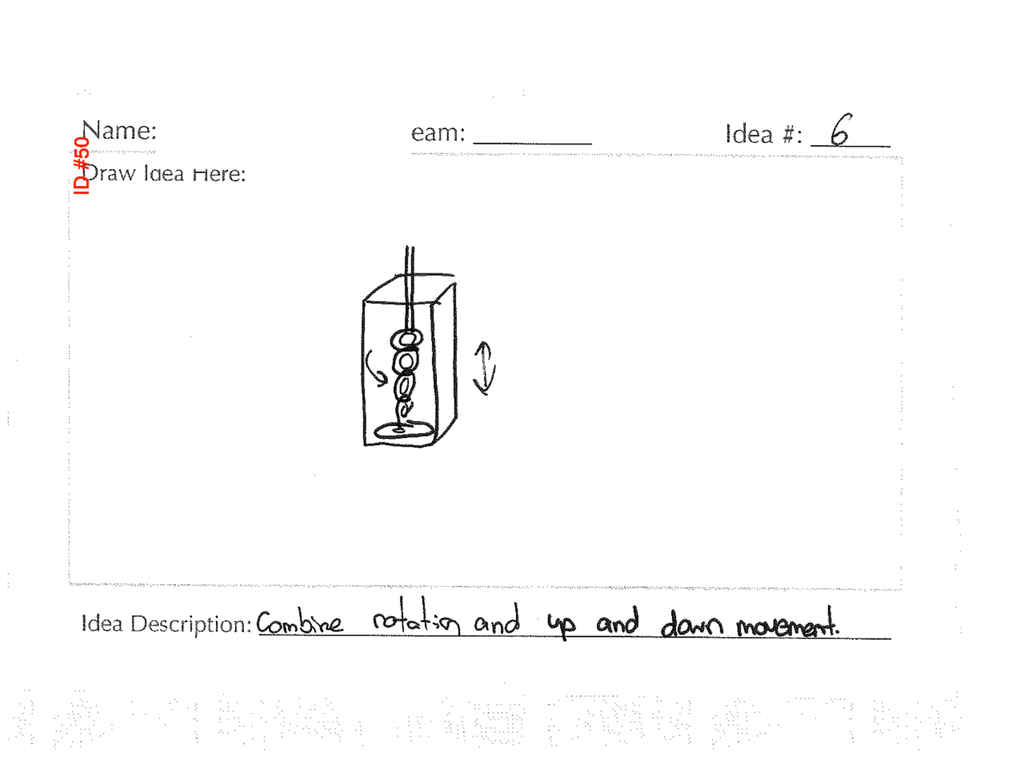 Name: eam: Idea #: 6
ID #50
Draw Idea Here:
Idea Description: Combine rotation and up and down movement.